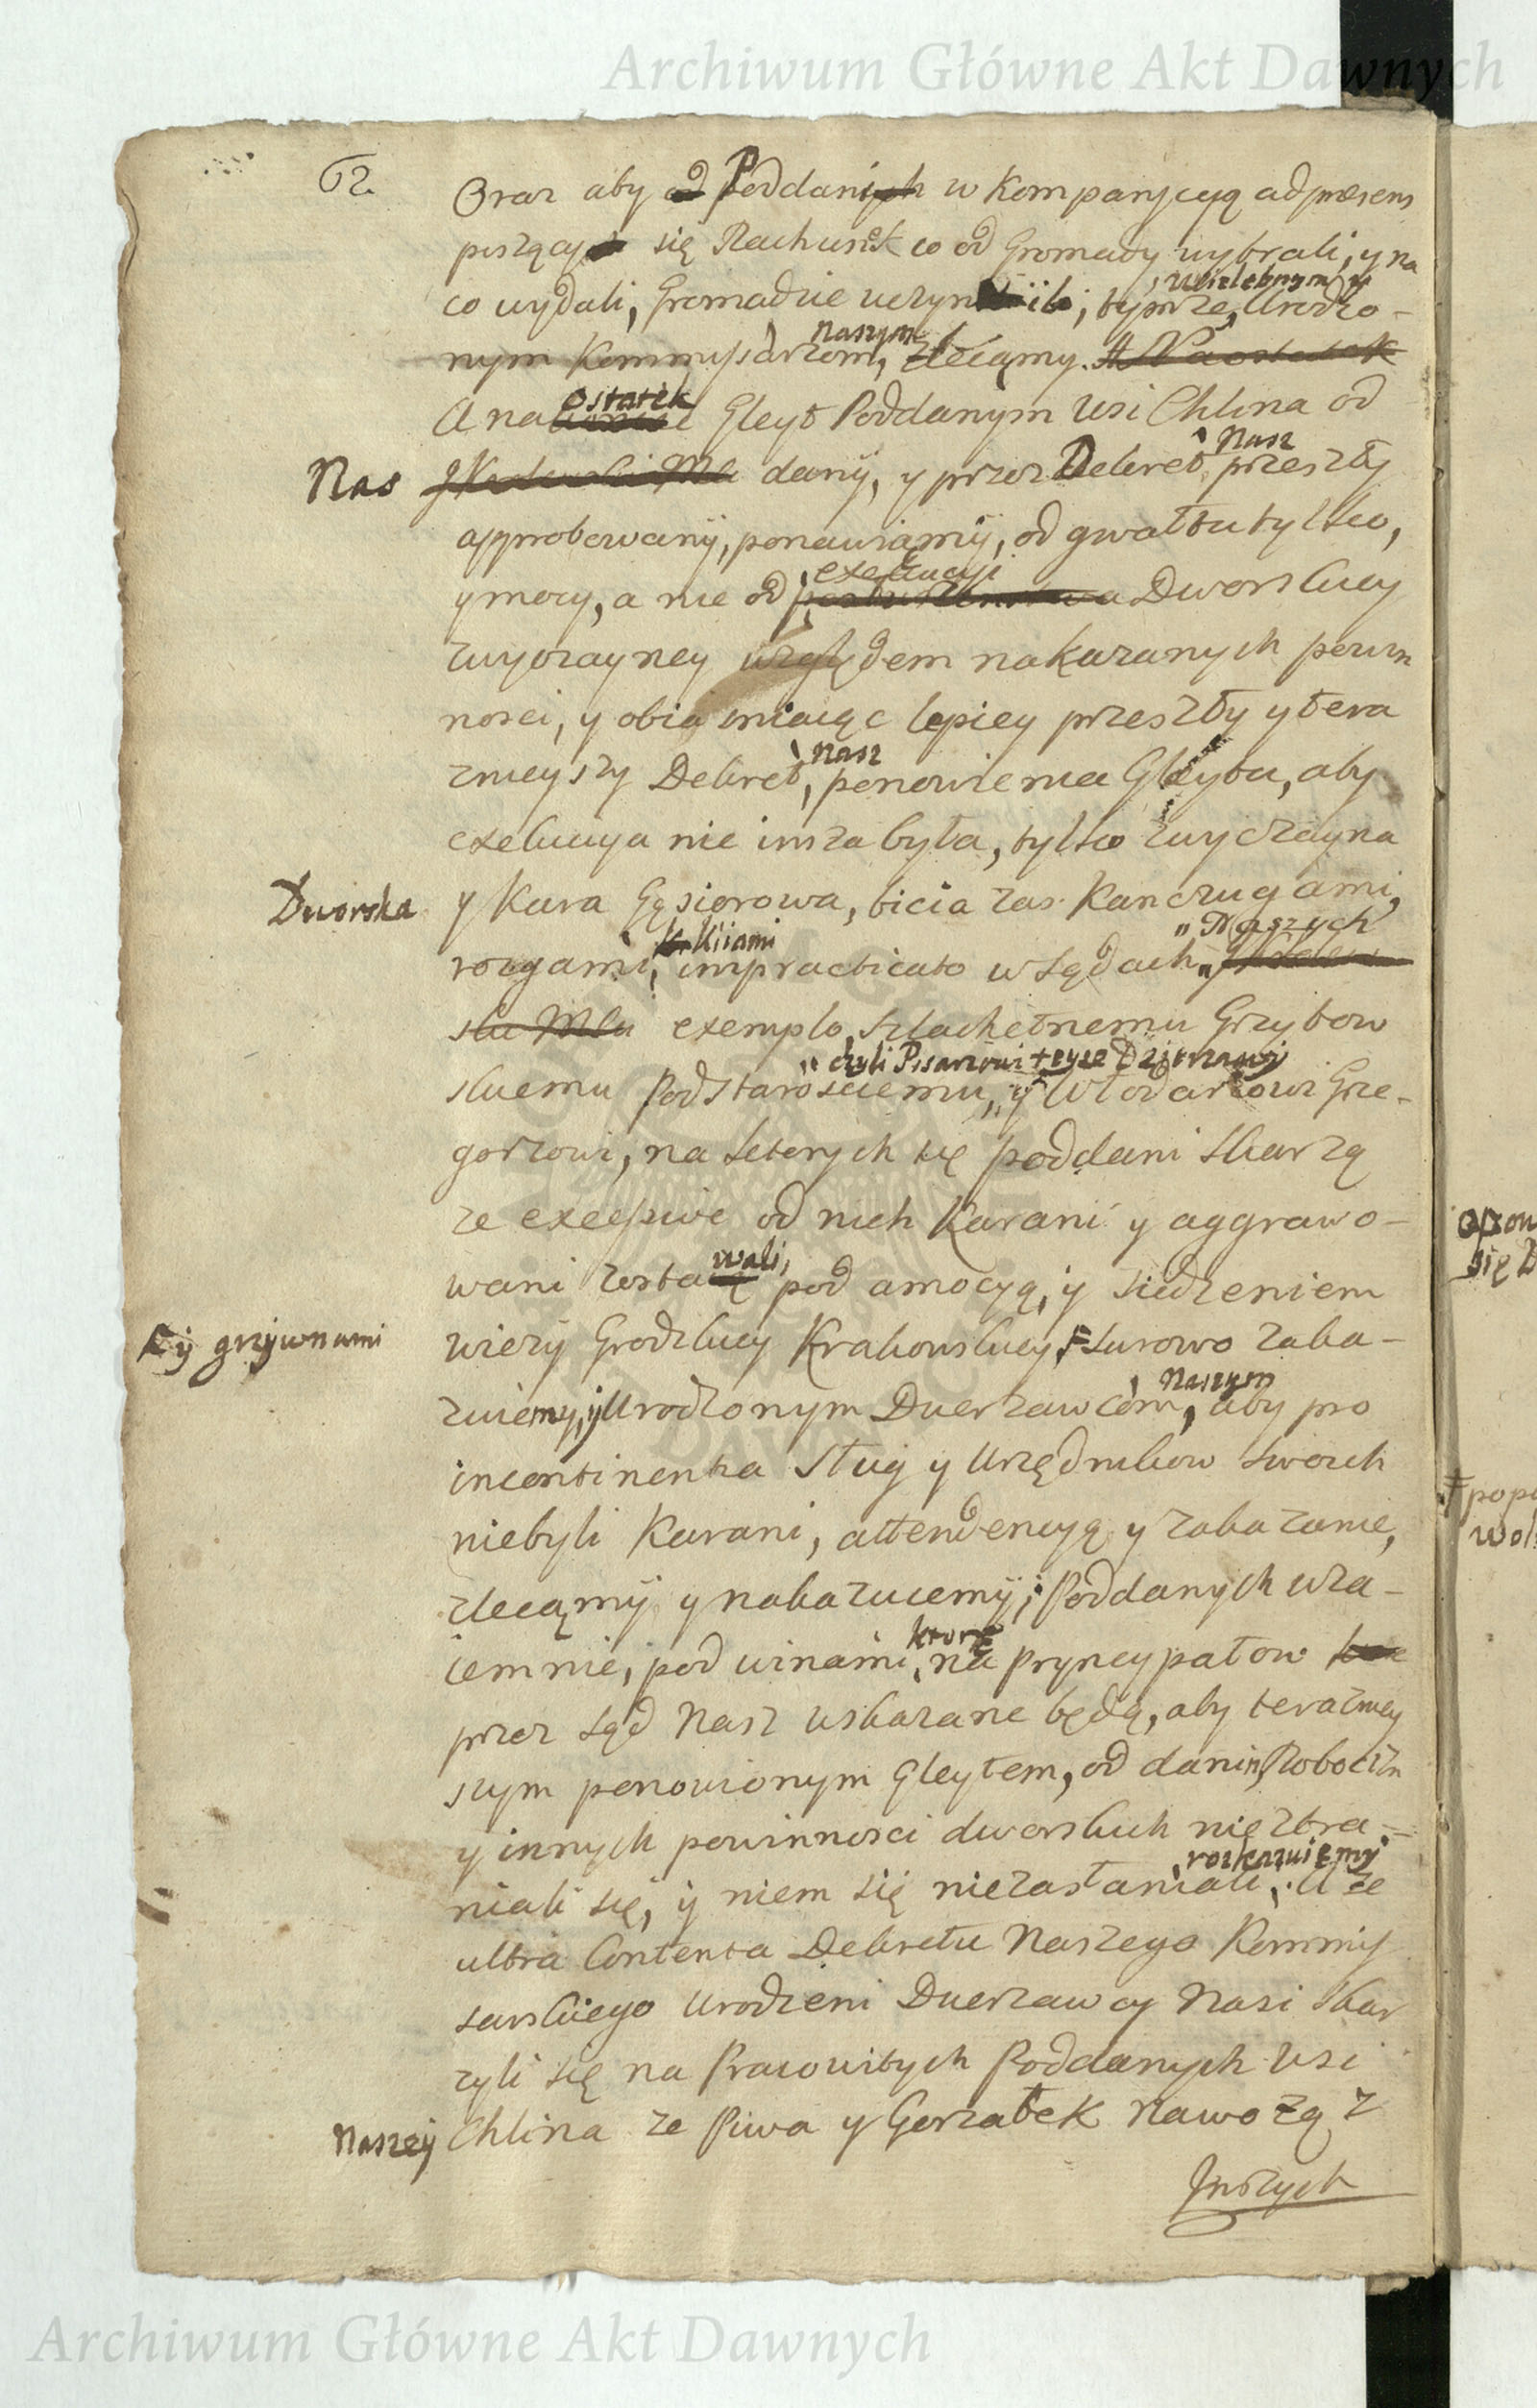 Archiwum Główne Akt Dawnych
62.
Oraz aby od Poddanych w Kompanycyą ad præsens
piszący się Rachunek co od Gromady wybrali, y na
co wydali, Gromadzie uczynili, tymże, Wielebnym y Urodzo-
nym Kommissarzom, naszym zlecamy. A Na ostatek
A na ostatek Gleyt Poddanym Wsi Chlina od
Nas dany, y przez Dekret Nasz przeszły
approbowany, ponawiamy, od gwałtu tylko,
y mocy, a nie od exekucyi Dworskiey
zwyczayney względem nakazanych powin
nosci, y obiaśniaiąc lepiey przeszły y tera
znieyszy Dekret, nasz ponowienia Gleytu, aby
exekucya nie insza była, tylko zwyczayna
Dworska y Kara Gąsiorowa, bicia zas Kanczugami,
rozgami, Kiiami impracticato w Sądach, Naszych
exemplo, Szlachetnemu Grzybow
skiemu Podstarosciemu, czyli Pisarzowi teyze Dzierzawy y Włodarzowi Grze-
gorzowi, na ktorych się poddani skarzą
ze excessive od nich Karani y aggrawo-
wani zostawali, pod amocyą, y siedzeniem
Ry grzywnami wiezy Grodzkiey Krakowskiey, surowo zaka-
zuiemy, y Urodzonym Dzierzawcom, Naszym aby pro
incontinentia Sług y Urzędnikow swoich
niebyli Karani, attendencyą y zakazanie,
zlecamy y nakazuiemy; Poddanych wza-
iemnie, pod winami, ktore na pryncypałow
przez Sąd Nasz wskazane będą, aby teraźniey
szym ponowionym Gleytem, od danin, Robocizn
y innych powinnosci dworskich nie zbra-
niali się, y niem się niezasłaniali, rozkazuiemy. A że
ultra Contenta Dekretu Naszego Kommis
sarskiego Urodzeni Dzierzawcy Nasi skar
zyli się na Pracowitych Poddanych Wsi
Naszey Chlina ze Piwa y Gorzałek nawożą z
Inszych
Archiwum Główne Akt Dawnych